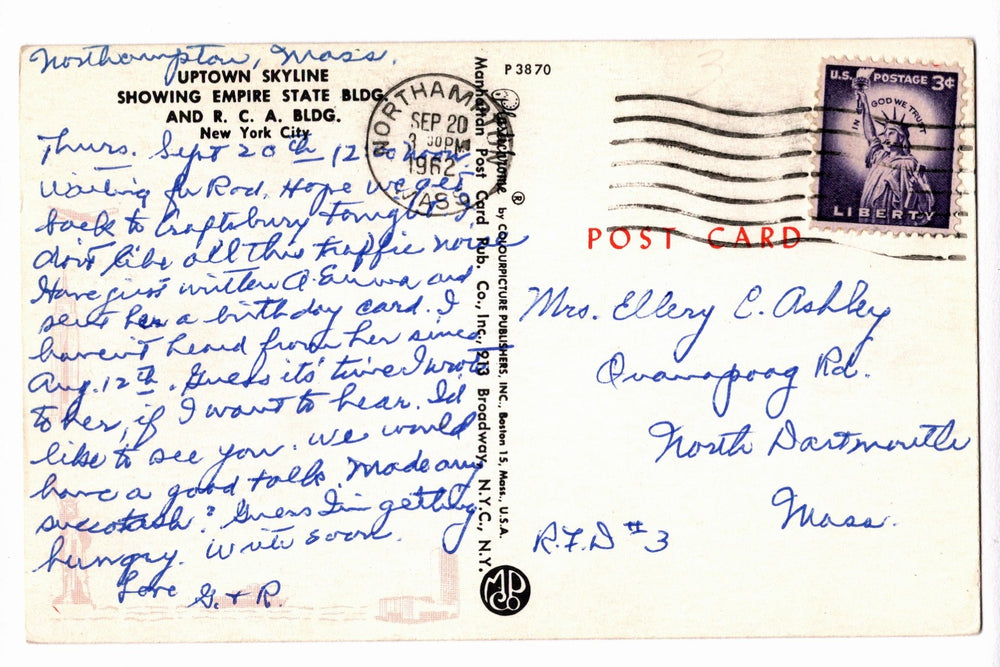 Northampton, Mass.
UPTOWN SKYLINE
SHOWING EMPIRE STATE BLDG.
AND R. C. A. BLDG.
New York City
Thurs. Sept 20th 12 noon
Waiting for Rod. Hope we get
back to Craftsbury tonight. I
don't like all this traffic noise
Have just written A. Emma and
sent her a birthday card. I
haven't heard from her since
Aug. 12th. Guess its' time I wrote
to her, if I want to hear. I'd
like to see you. We would
have a good talk. Made any
succotash? Guess I'm getting
hungry. Write soon.
Love G. + R.
P 3870
Plastichrome ® by COLOURPICTURE PUBLISHERS, INC., Boston 15, Mass., U.S.A.
Manhattan Post Card Pub. Co., Inc., 913 Broadway, N.Y.C., N.Y.
MPC CO
NORTHAMPTON
SEP 20
3 30 PM
1962
MASS
U.S. POSTAGE 3¢
IN GOD WE TRUST
LIBERTY
POST CARD
Mrs. Ellery C. Ashley
Quanapoag Rd.
North Dartmouth
Mass.
R.F.D #3